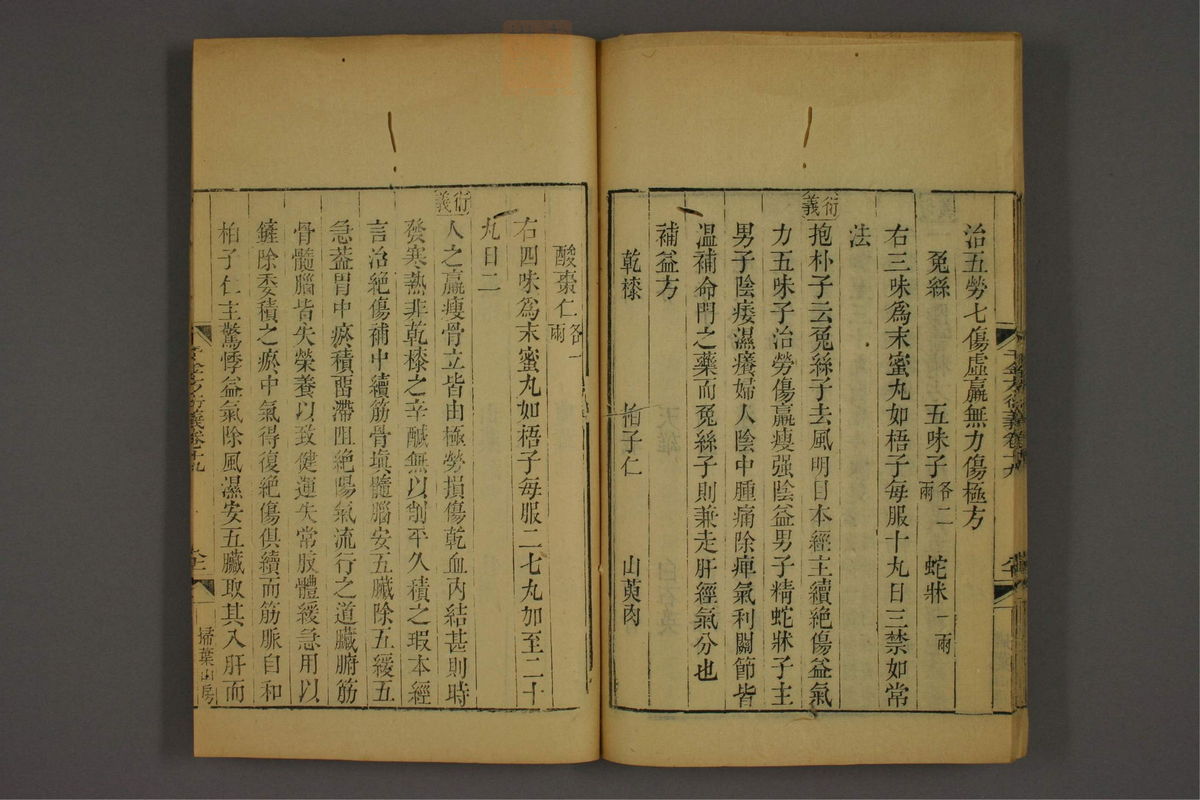 治五勞七傷虛羸無力傷極方
兔絲 五味子各二兩 蛇牀一兩
右三味爲末蜜丸如梧子每服十丸日三禁如常
法
衍義
抱朴子云兔絲子去風明目本經主續絶傷益氣
力五味子治勞傷羸瘦强陰益男子精蛇牀子主
男子陰痿濕癢婦人陰中腫痛除痺氣利關節皆
溫補命門之藥而兔絲子則兼走肝經氣分也
補益方
乾榛 柏子仁 山萸肉
酸棗仁各一兩
右四味爲末蜜丸如梧子每服二七丸加至二十
丸日二
衍義
人之羸瘦骨立皆由極勞損傷乾血內結甚則時
發寒熱非乾榛之辛鹹無以削平久積之瘕本經
言治絶傷補中續筋骨塡髓腦安五臟除五緩五
急葢胃中瘀積畱滯阻絶陽氣流行之道臟腑筋
骨髓腦皆失榮養以致健運失常肢體緩急用以
鏟除委積之瘀中氣得復絶傷俱續而筋脈自和
柏子仁主驚悸益氣除風濕安五臟取其入肝而
千金方衍義卷十九
掃葉山房